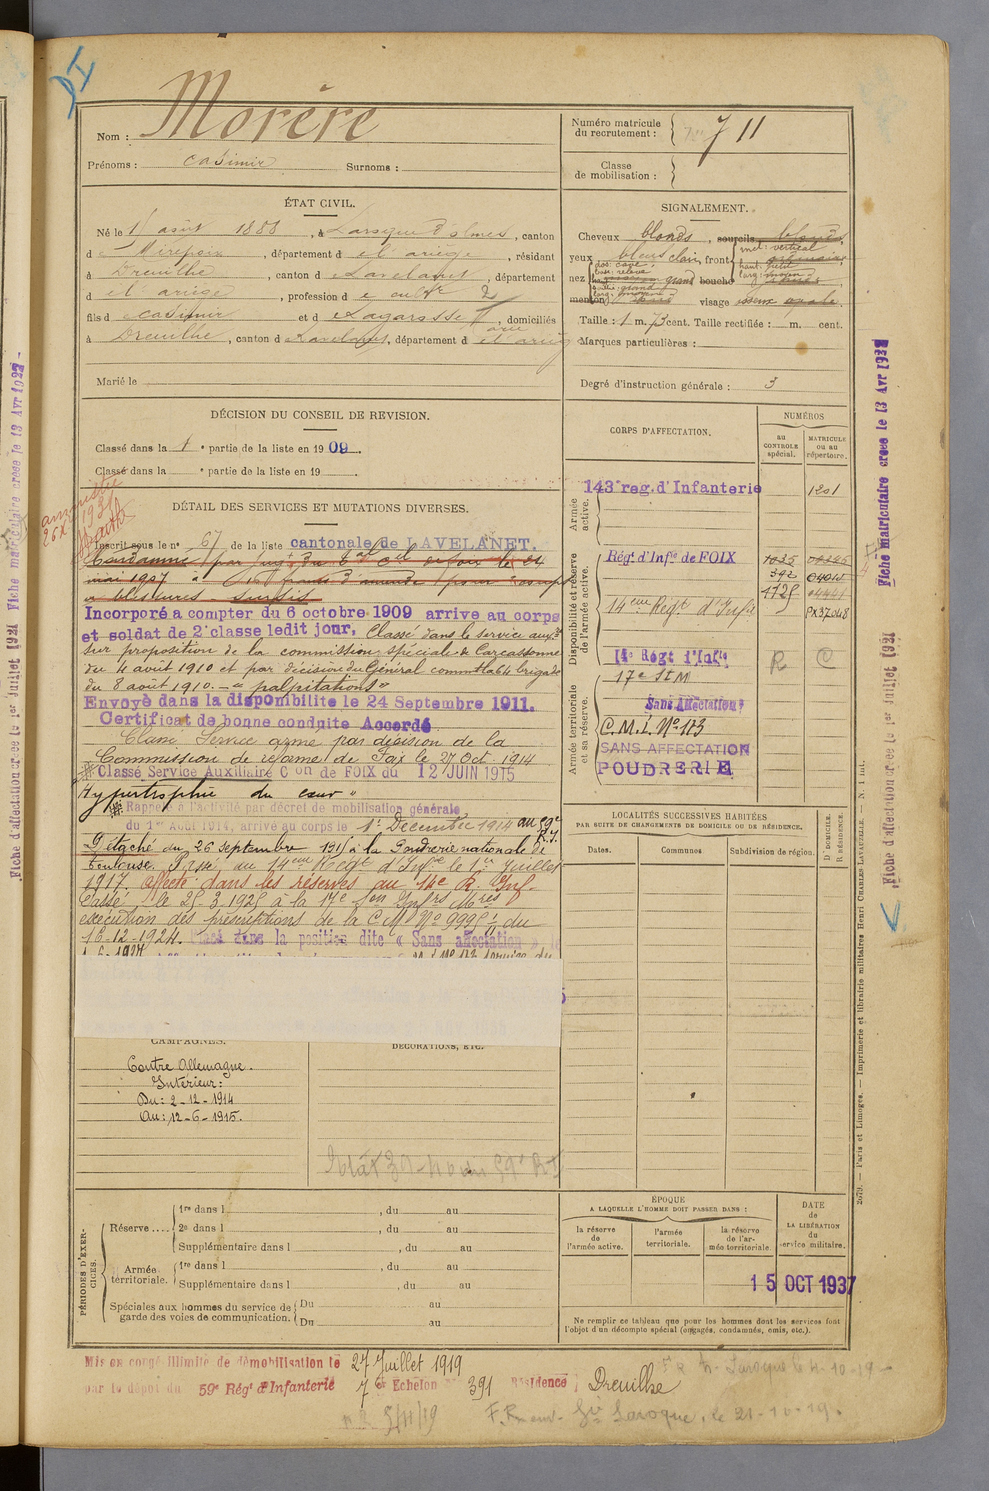 DI
Morère
Nom :
Prénoms : Casimir Surnoms :
Numéro matricule
du recrutement : 711
Classe
de mobilisation :
ÉTAT CIVIL.
Né le 1 août 1888, à Laroque d'Olmes, canton
d e Mirepoix, département d e l'ariège, résidant
à Dreuilhe, canton d e Lavelanet, département
d e l'ariège, profession d e cultr 2
fils d e Casimir et d e Lagarosse, domiciliés
à Dreuilhe, canton d e Lavelanet, département d e l'ariège
Marié le
SIGNALEMENT.
Cheveux blonds, sourcils blonds,
yeux bleus clair, front incl: vertical
haut:
larg: moyen
nez dos: cave,
base: relevé
haut: grand bouche
saillie: grand
larg: moyenne
menton visage osseux ovale.
Taille : 1 m. 73 cent. Taille rectifiée : m. cent.
Marques particulières :
Degré d'instruction générale : 3
DÉCISION DU CONSEIL DE REVISION.
Classé dans la 1e partie de la liste en 1909.
Classé dans la e partie de la liste en 19
DÉTAIL DES SERVICES ET MUTATIONS DIVERSES.
amnistie
1931
Inscrit sous le n° 67 de la liste cantonale de LAVELANET.
Condamné par jugt du tal cel de Foix le 24
mai 1907 à 16 francs d'amende pour coups
et blessures - Sursis
Incorporé a compter du 6 octobre 1909 arrive au corps
et soldat de 2e classe ledit jour, Classé dans le service auxre
sur proposition de la commission spéciale de Carcassonne
du 4 août 1910 et par décision du Général commt la 64 brigade
du 8 août 1910. - "palpitations"
Envoyé dans la disponibilite le 24 Septembre 1911.
Certificat de bonne conduite Accordé
Classé Service armé par décision de la
Commission de réforme de Foix le 27 Oct. 1914
Classé Service Auxiliaire Con de FOIX du 12 JUIN 1915
Hypertrophie du cœur"
Rappelé à l'activité par décret de mobilisation générale
du 1er Août 1914, arrivé au corps le 1r Décembre 1914 au 59e
R.I.
Détaché du 26 septembre 191 à la Poudrerie nationale de
Toulouse. Passé au 14eme Régt d'Infie le 1er Juillet
1917. affecté dans les réserves au 14e R. Inf.
Passé le 25.3.1925 à la 17e Son Infrs Mres
exécution des prescriptions de la C M No 9995 du
16-12-1924. Placé dans la position dite « Sans affectation », le
CAMPAGNES.
DÉCORATIONS, ETC.
Contre Allemagne.
Intérieur:
Du: 2-12-1914
Au: 12-6-1915.
CORPS D'AFFECTATION.
NUMÉROS
au
CONTROLE
spécial.
MATRICULE
ou au
répertoire.
Armée
active.
143e reg. d'Infanterie 1201
Disponibilité et réserve
de l'armée active.
Rég. d'Infie de FOIX 1035
392 04015
14eme Régt d'Infie 1725 04441
PX37048
14e Régt d'Infie R C
Armée territoriale
et sa réserve.
17e S I M
Sans Affectation
C.M.I. No 173
SANS AFFECTATION
POUDRERIE
LOCALITÉS SUCCESSIVES HABITÉES
PAR SUITE DE CHANGEMENTS DE DOMICILE OU DE RÉSIDENCE.
Dates. Communes. Subdivision de région.
D. DOMICILE.
R. RÉSIDENCE.
ÉPOQUE
A LAQUELLE L'HOMME DOIT PASSER DANS :
la réserve
de
l'armée active.
l'armée
territoriale.
la réserve
de l'ar-
mée territoriale.
DATE
de
LA LIBÉRATION
du
service militaire.
15 OCT 1937
Ne remplir ce tableau que pour les hommes dont les services font
l'objet d'un décompte spécial (engagés, condamnés, omis, etc.).
PÉRIODES D'EXER-
CICES.
Réserve .... 1re dans l , du au
2e dans l , du au
Supplémentaire dans l , du au
Armée
territoriale. 1re dans l , du au
Supplémentaire dans l , du au
Spéciales aux hommes du service de
garde des voies de communication. Du au
Du au
Mis en congé illimité de démobilisation le 27 Juillet 1919
par le dépôt du 59e Rég' d'Infanterie 7e Echelon No 391 Résidence Dreuilhe
Laroque le 4-10-19
5/11/19 Laroque, le 21-10-19.
Fiche matriculaire créée le 13 Avr 1932
Fiche d'affectation créée le 1er Juillet 1921
2679. — Paris et Limoges. — Imprimerie et librairie militaires Henri CHARLES-LAVAUZELLE.
Fiche matriculaire créée le 13 Avr 1932
Fiche d'affectation créée le 1er Juillet 1921